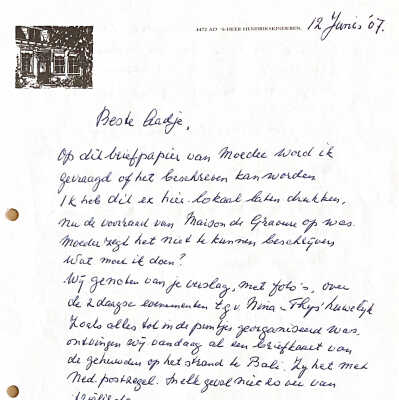 4472 AD 'S-HEER HENDRIKSKINDEREN, 12 Juni '07.
Beste Aadje,
Op dit briefpapier van Moeder word ik
gevraagd of het beschreven kan worden
Ik heb dit ex hier lokaal laten drukken,
nu de voorraad van Maison de Graauw op was.
Moeder zegt het niet te kunnen beschrijven
Wat moet ik doen?
Wij genoten van je verslag, met foto's, over
de 2 daagse evenementen t.g.v. Nina - Thys' huwelijk
Zoals alles tot in de puntjes georganiseerd was.
ontvingen wij vandaag al een briefkaart van
de gehuwden op het strand te Bali. Zij het met
Ned. postzegel. In elk geval niet zo ver van